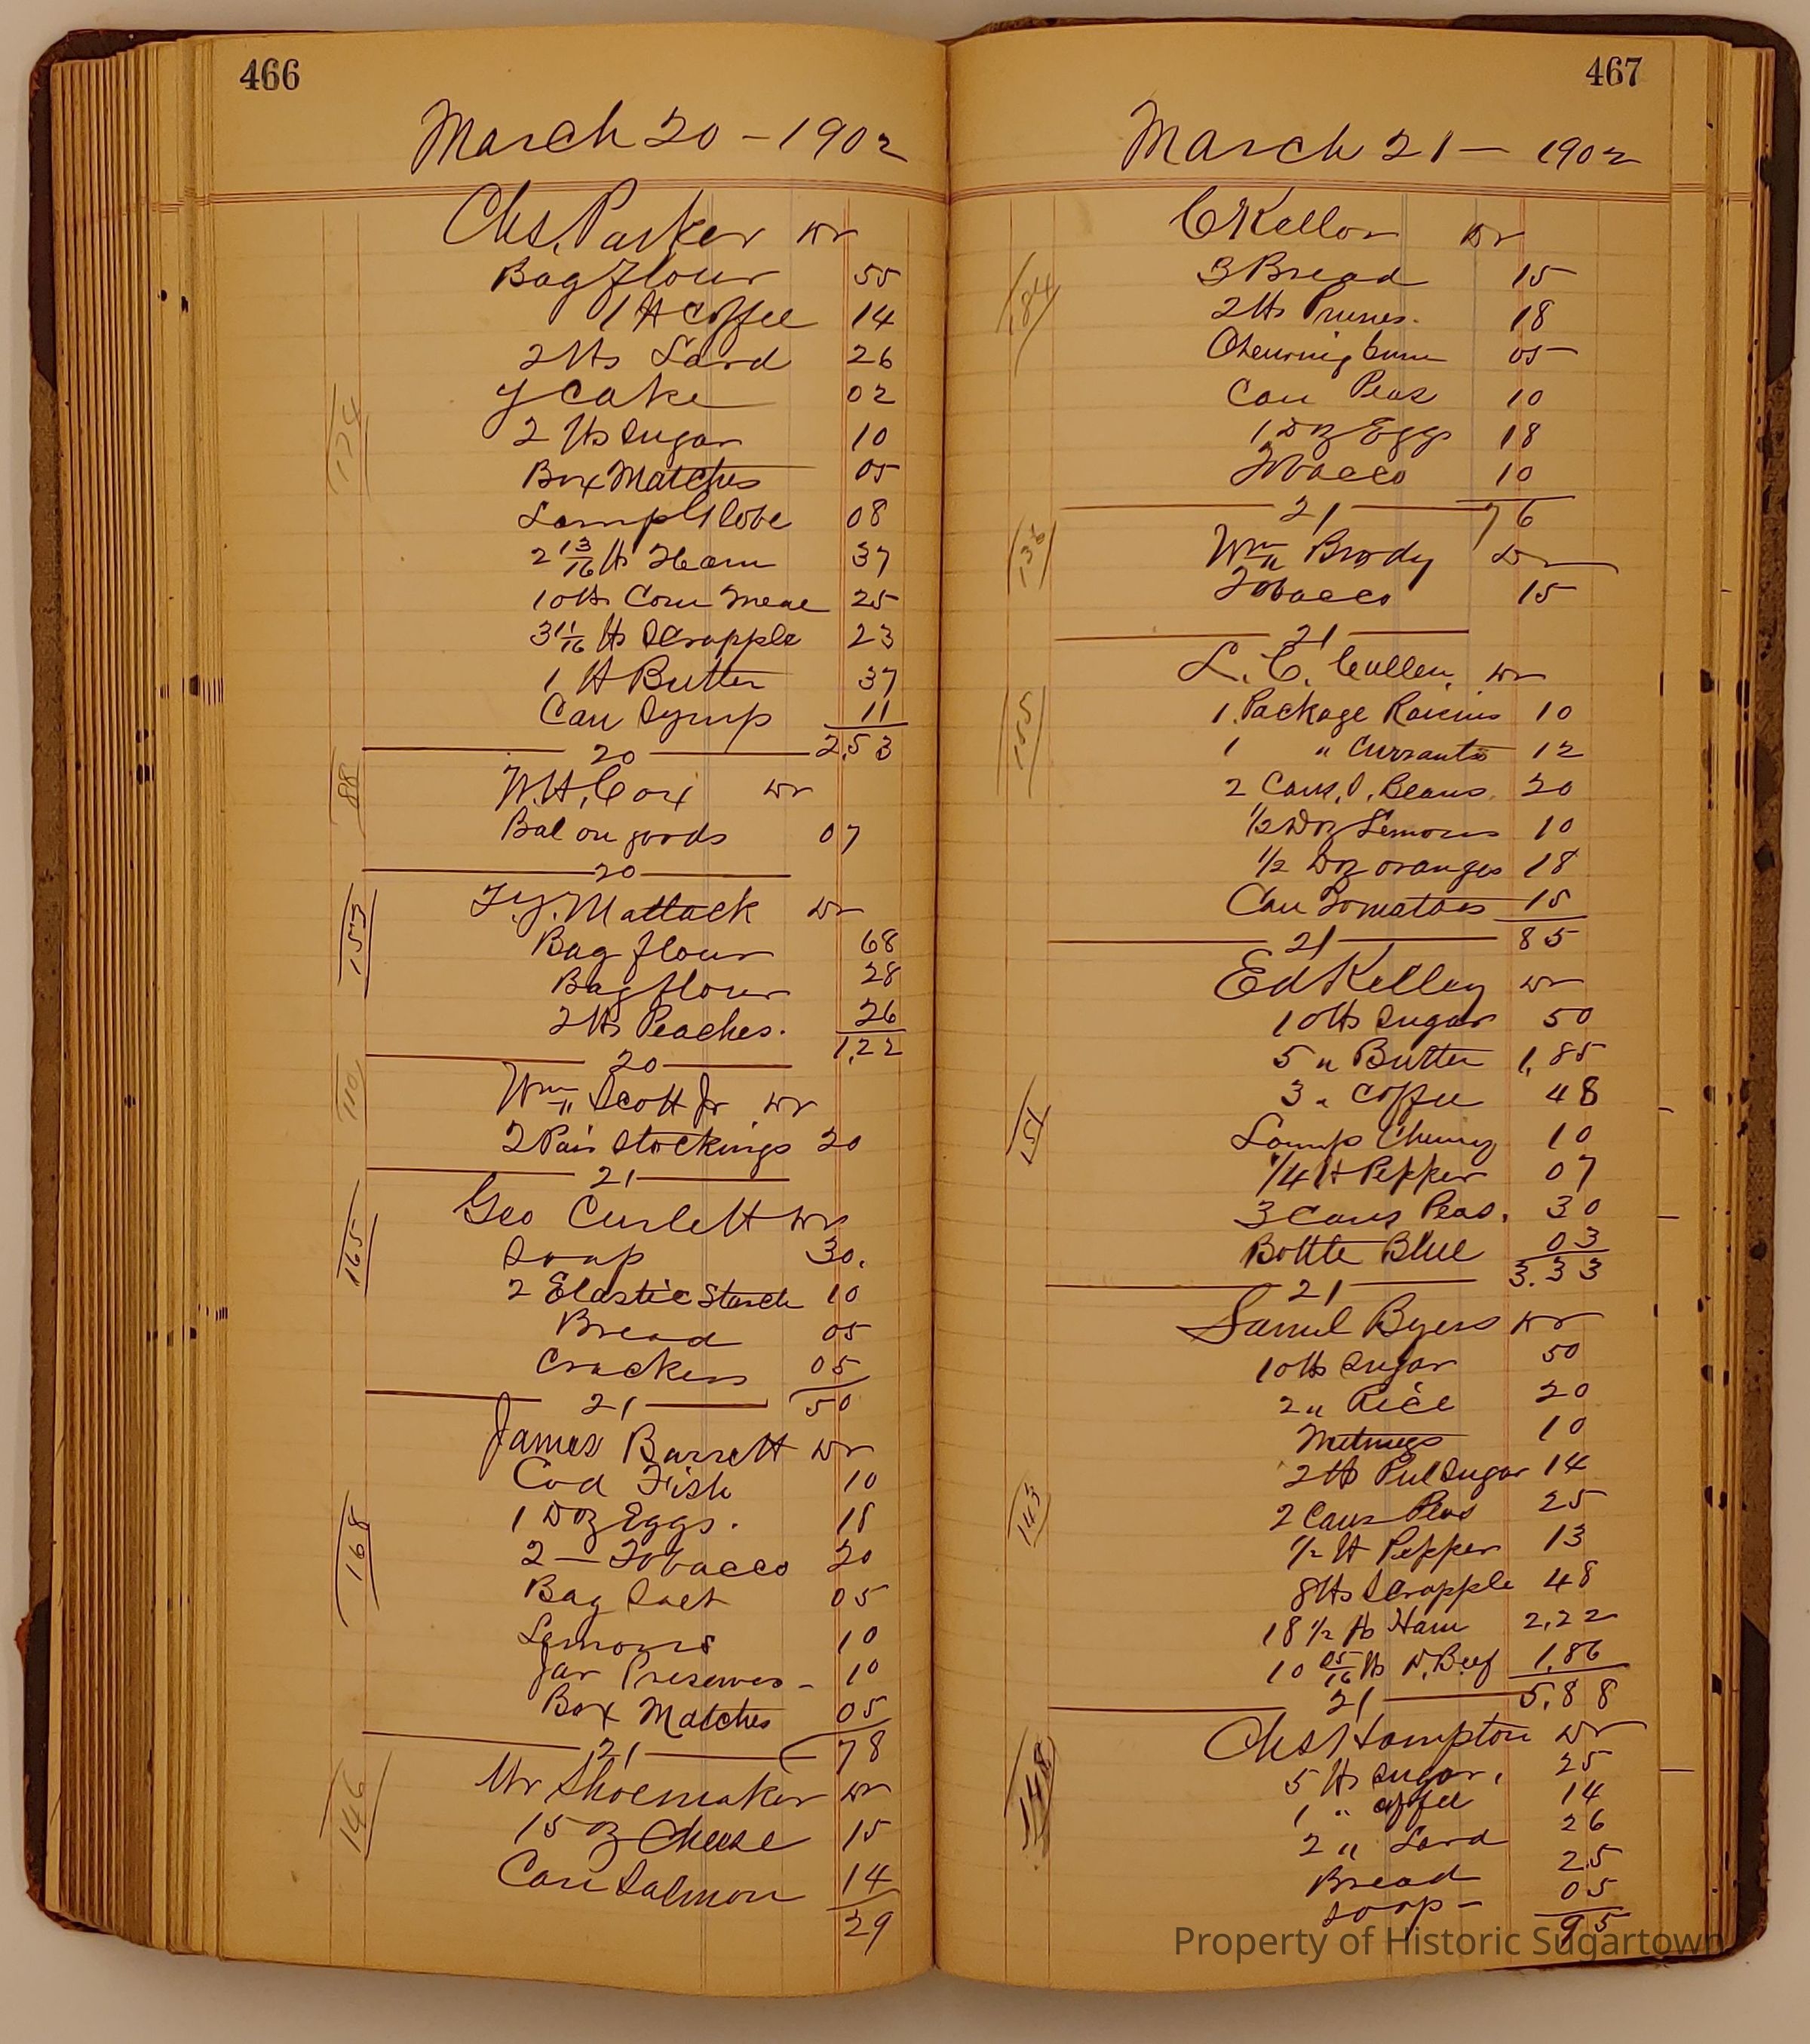 466
March 20 - 1902
Chs. Parker Dr
Bag Flour 55
1 lb Coffee 14
2 lbs Lard 26
Y Cake 02
2 lbs Sugar 10
Box Matches 05
Lamp Globe 08
2 13/16 lb Ham 37
10 lbs Corn Meal 25
3 11/16 lbs Scrapple 23
1 lb Butter 37
Can Syrup 11
174
20 2.53
W.H. Cox Dr
Bal on goods 07
88
20
T.J. Mattack Dr
Bag flour 68
Bag flour 28
2 lbs Peaches. 26
153
20 1,22
Wm Scott Jr Dr
2 Pair Stockings 20
110
21
Geo Curlett Dr
Soap 30.
2 Elastic Starch 10
Bread 05
Crackers 05
165
21 50
James Barrett Dr
Cod Fish 10
1 Doz Eggs. 18
2 — Tobacco 20
Bag Salt 05
Lemons 10
Jar Preserves - 10
Box Matches 05
168
21 78
Mr Shoemaker Dr
15 oz Cheese 15
Can Salmon 14
29
146
467
March 21 - 1902
C Kellor Dr
3 Bread 15
2 lbs Prunes. 18
Chewing Gum 05
Can Peas 10
1 Doz Eggs 18
Tobacco 10
184
21 76
Wm Brody Dr
Tobacco 15
136
21
L. C. Cullen. Dr
1 Package Raisins 10
1 " Currants 12
2 Cans. S. Beans. 20
1/2 Doz Lemons 10
1/2 Doz oranges 18
Can Tomatoes 15
155
21 85
Ed Kelley Dr
10 lbs Sugar 50
5 " Butter 1,85
3 " Coffee 48
Lamp Chimy 10
1/4 lb Pepper 07
3 Cans Peas. 30
Bottle Blue 03
151
21 3.33
Samul Byers Dr
10 lbs Sugar 50
2 " Rice 20
Nutmegs 10
2 lb Pul Sugar 14
2 Cans Peas 25
1/2 lb Pepper 13
8 lbs Scrapple 48
18 1/2 lb Ham 2,22
10 05/16 lbs D. Beef 1,86
143
21 5,88
Chs Hampton Dr
5 lbs Sugar. 25
1 " Coffee 14
2 " Lard 26
Bread 25
Soap - 05
95
148
Property of Historic Sugartown